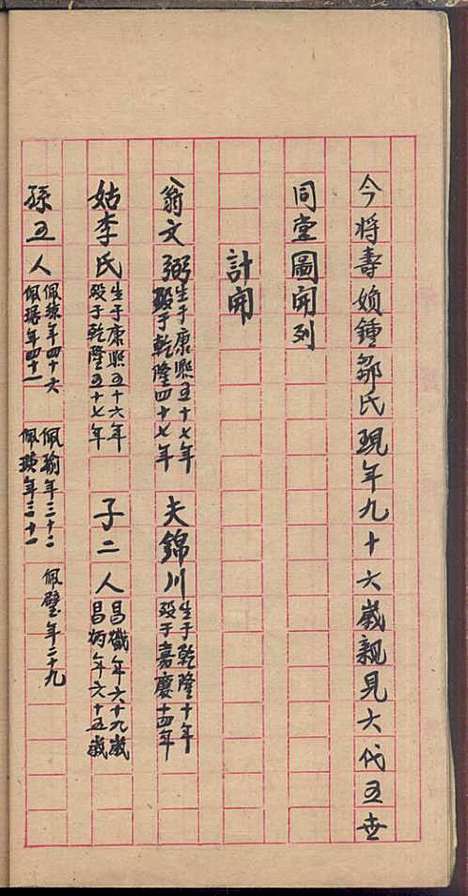 今将壽媍鍾鄒氏現年九十六歲親見六代五世
同堂圖開列
計開
翁文弼 生于康熙五十七年 殁于乾隆四十七年 夫錦川 生于乾隆十年 殁于嘉慶十四年
姑李氏 生于康熙五十六年 殁于乾隆五十七年 子二人 昌熾年六十九歲 昌炳年六十五歲
孫五人 佩珠年四十六 佩瑶年四十一 佩瑜年三十二 佩瑛年三十一 佩璧年二十九